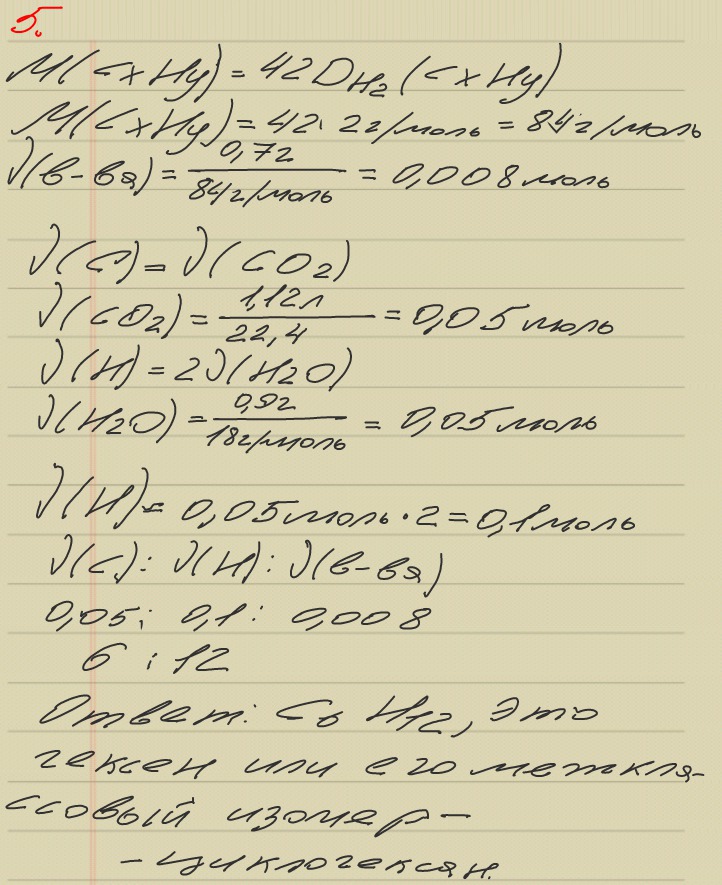 5.
M(CxHy) = 42D_{H2}(CxHy)
M(CxHy) = 42 · 2г/моль = 84г/моль
√(в-ва) = 0,7г / 84г/моль = 0,008 моль
√(C) = √(CO2)
√(CO2) = 1,12л / 22,4 = 0,05 моль
√(H) = 2√(H2O)
√(H2O) = 0,9г / 18г/моль = 0,05 моль
√(H) = 0,05 моль · 2 = 0,1 моль
√(C) : √(H) : √(в-ва)
0,05 : 0,1 : 0,008
6 : 12
Ответ: C6 H12, это
гексен или его межкла-
ссовый изомер -
- циклогексан.